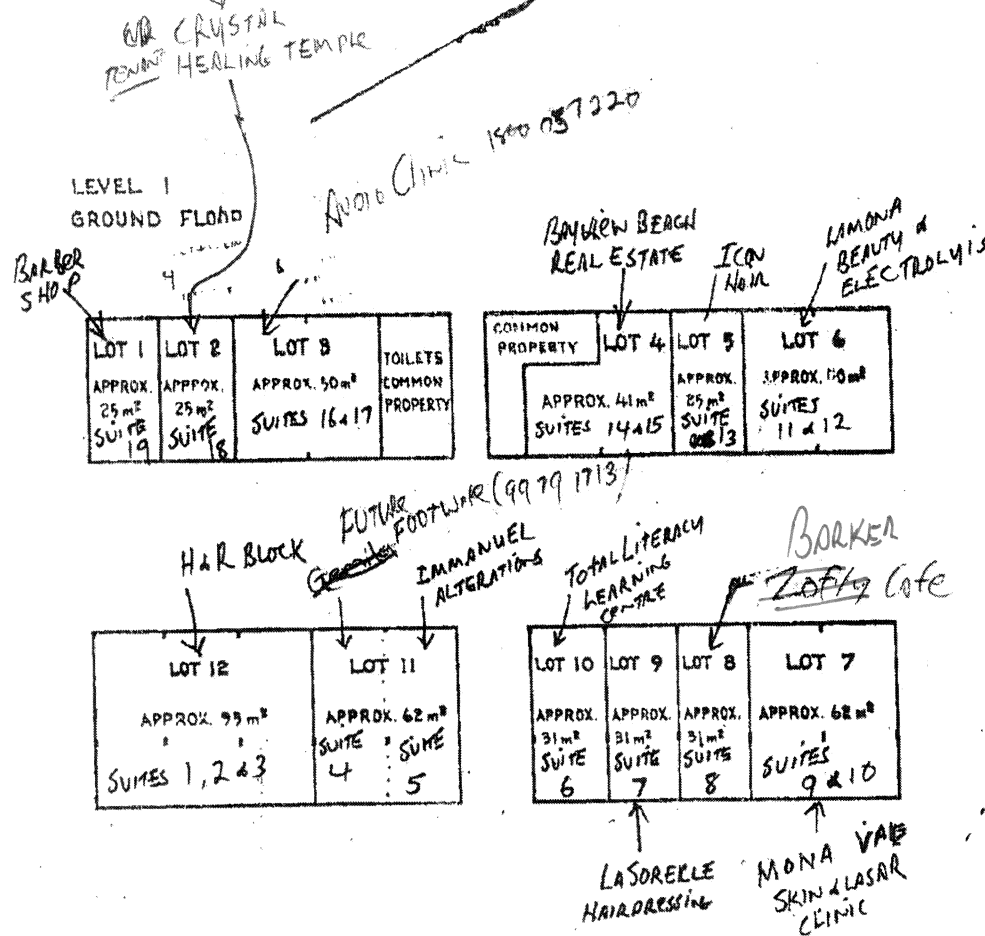 CRYSTAL
TENANT HEALING TEMPLE
AUDIO CLINIC 1800 057220
LEVEL 1
GROUND FLOOR
BARBER
SHOP
4
BAYVIEW BEACH
REAL ESTATE
ICON
HAIR
LAMONA
BEAUTY &
ELECTROLYIS
LOT 1
APPROX.
25m²
SUITE
19
LOT 2
APPROX.
25m²
SUITE
18
LOT 3
APPROX. 50m²
SUITES 16 & 17
TOILETS
COMMON
PROPERTY
COMMON
PROPERTY
LOT 4
APPROX. 41m²
SUITES 14 & 15
LOT 5
APPROX.
25m²
SUITE
13
LOT 6
APPROX.
SUITES
11 & 12
H & R BLOCK
FUTURE
FOOTWARE (9979 1713)
IMMANUEL
ALTERATIONS
TOTAL LITERACY
LEARNING
CENTRE
BARKER
Cafe
LOT 12
APPROX. 95m²
SUITES 1, 2 & 3
LOT 11
APPROX. 62m²
SUITE
4
SUITE
5
LOT 10
APPROX.
31m²
SUITE
6
LOT 9
APPROX.
31m²
SUITE
7
LOT 8
APPROX.
31m²
SUITE
8
LOT 7
APPROX. 62m²
SUITES
9 & 10
LASORELLE
HAIRDRESSING
MONA VALE
SKIN & LASAR
CLINIC